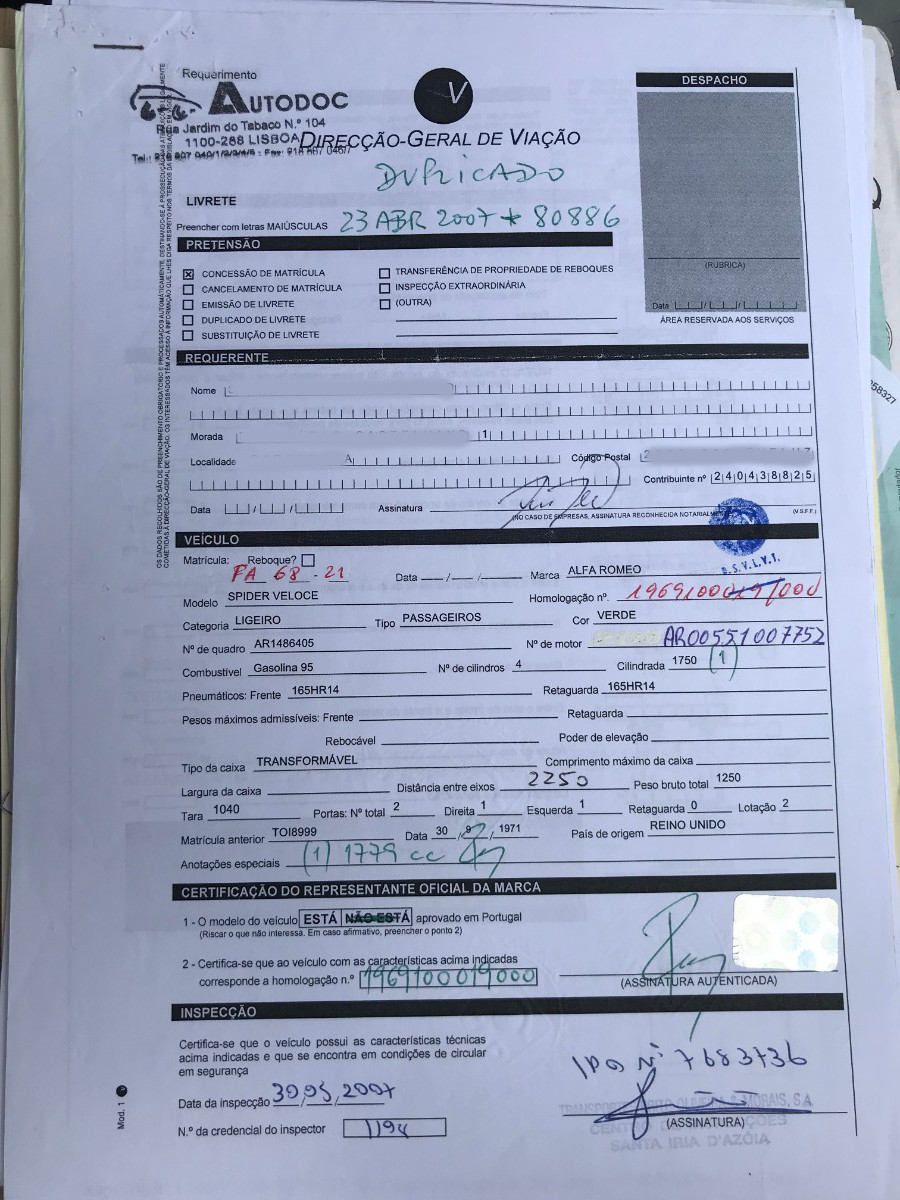 Requerimento
AUTODOC
Rua Jardim do Tabaco N.º 104
1100-288 LISBOA
DIRECÇÃO-GERAL DE VIAÇÃO
V
DESPACHO
DUPLICADO
LIVRETE
Preencher com letras MAIÚSCULAS
23 ABR 2007 * 80886
(RUBRICA)
Data
ÁREA RESERVADA AOS SERVIÇOS
PRETENSÃO
CONCESSÃO DE MATRÍCULA
CANCELAMENTO DE MATRÍCULA
EMISSÃO DE LIVRETE
DUPLICADO DE LIVRETE
SUBSTITUIÇÃO DE LIVRETE
TRANSFERÊNCIA DE PROPRIEDADE DE REBOQUES
INSPECÇÃO EXTRAORDINÁRIA
(OUTRA)
REQUERENTE
Nome
Morada 1
Localidade A Código Postal 2
Contribuinte nº 240438825
Data / / Assinatura
(NO CASO DE EMPRESAS, ASSINATURA RECONHECIDA NOTARIALMENTE
(V.S.F.F.)
D.S.V.L.V.T.
VEÍCULO
Matrícula: Reboque?
FA 68-21 Data / / Marca ALFA ROMEO
Modelo SPIDER VELOCE Homologação nº.
Categoria LIGEIRO Tipo PASSAGEIROS Cor VERDE
Nº de quadro AR1486405 Nº de motor AR00551007752
Combustível Gasolina 95 Nº de cilindros 4 Cilindrada 1750 (1)
Pneumáticos: Frente 165HR14 Retaguarda 165HR14
Pesos máximos admissíveis: Frente Retaguarda
Rebocável Poder de elevação
Tipo da caixa TRANSFORMÁVEL Comprimento máximo da caixa
Largura da caixa Distância entre eixos 2250 Peso bruto total 1250
Tara 1040 Portas: Nº total 2 Direita 1 Esquerda 1 Retaguarda 0 Lotação 2
Matrícula anterior TOI8999 Data 30 / 9 / 1971 País de origem REINO UNIDO
Anotações especiais (1) 1779 cc
CERTIFICAÇÃO DO REPRESENTANTE OFICIAL DA MARCA
1 - O modelo do veículo ESTÁ NÃO ESTÁ aprovado em Portugal
(Riscar o que não interessa. Em caso afirmativo, preencher o ponto 2)
2 - Certifica-se que ao veículo com as características acima indicadas
corresponde a homologação n.º 1969100019000
(ASSINATURA AUTENTICADA)
INSPECÇÃO
Certifica-se que o veículo possui as características técnicas
acima indicadas e que se encontra em condições de circular
em segurança
IPO Nº 7683736
Data da inspecção 30/05/2007
N.º da credencial do inspector 1194
(ASSINATURA)
SANTA IRIA D'AZÓIA
Mod. 1
58327